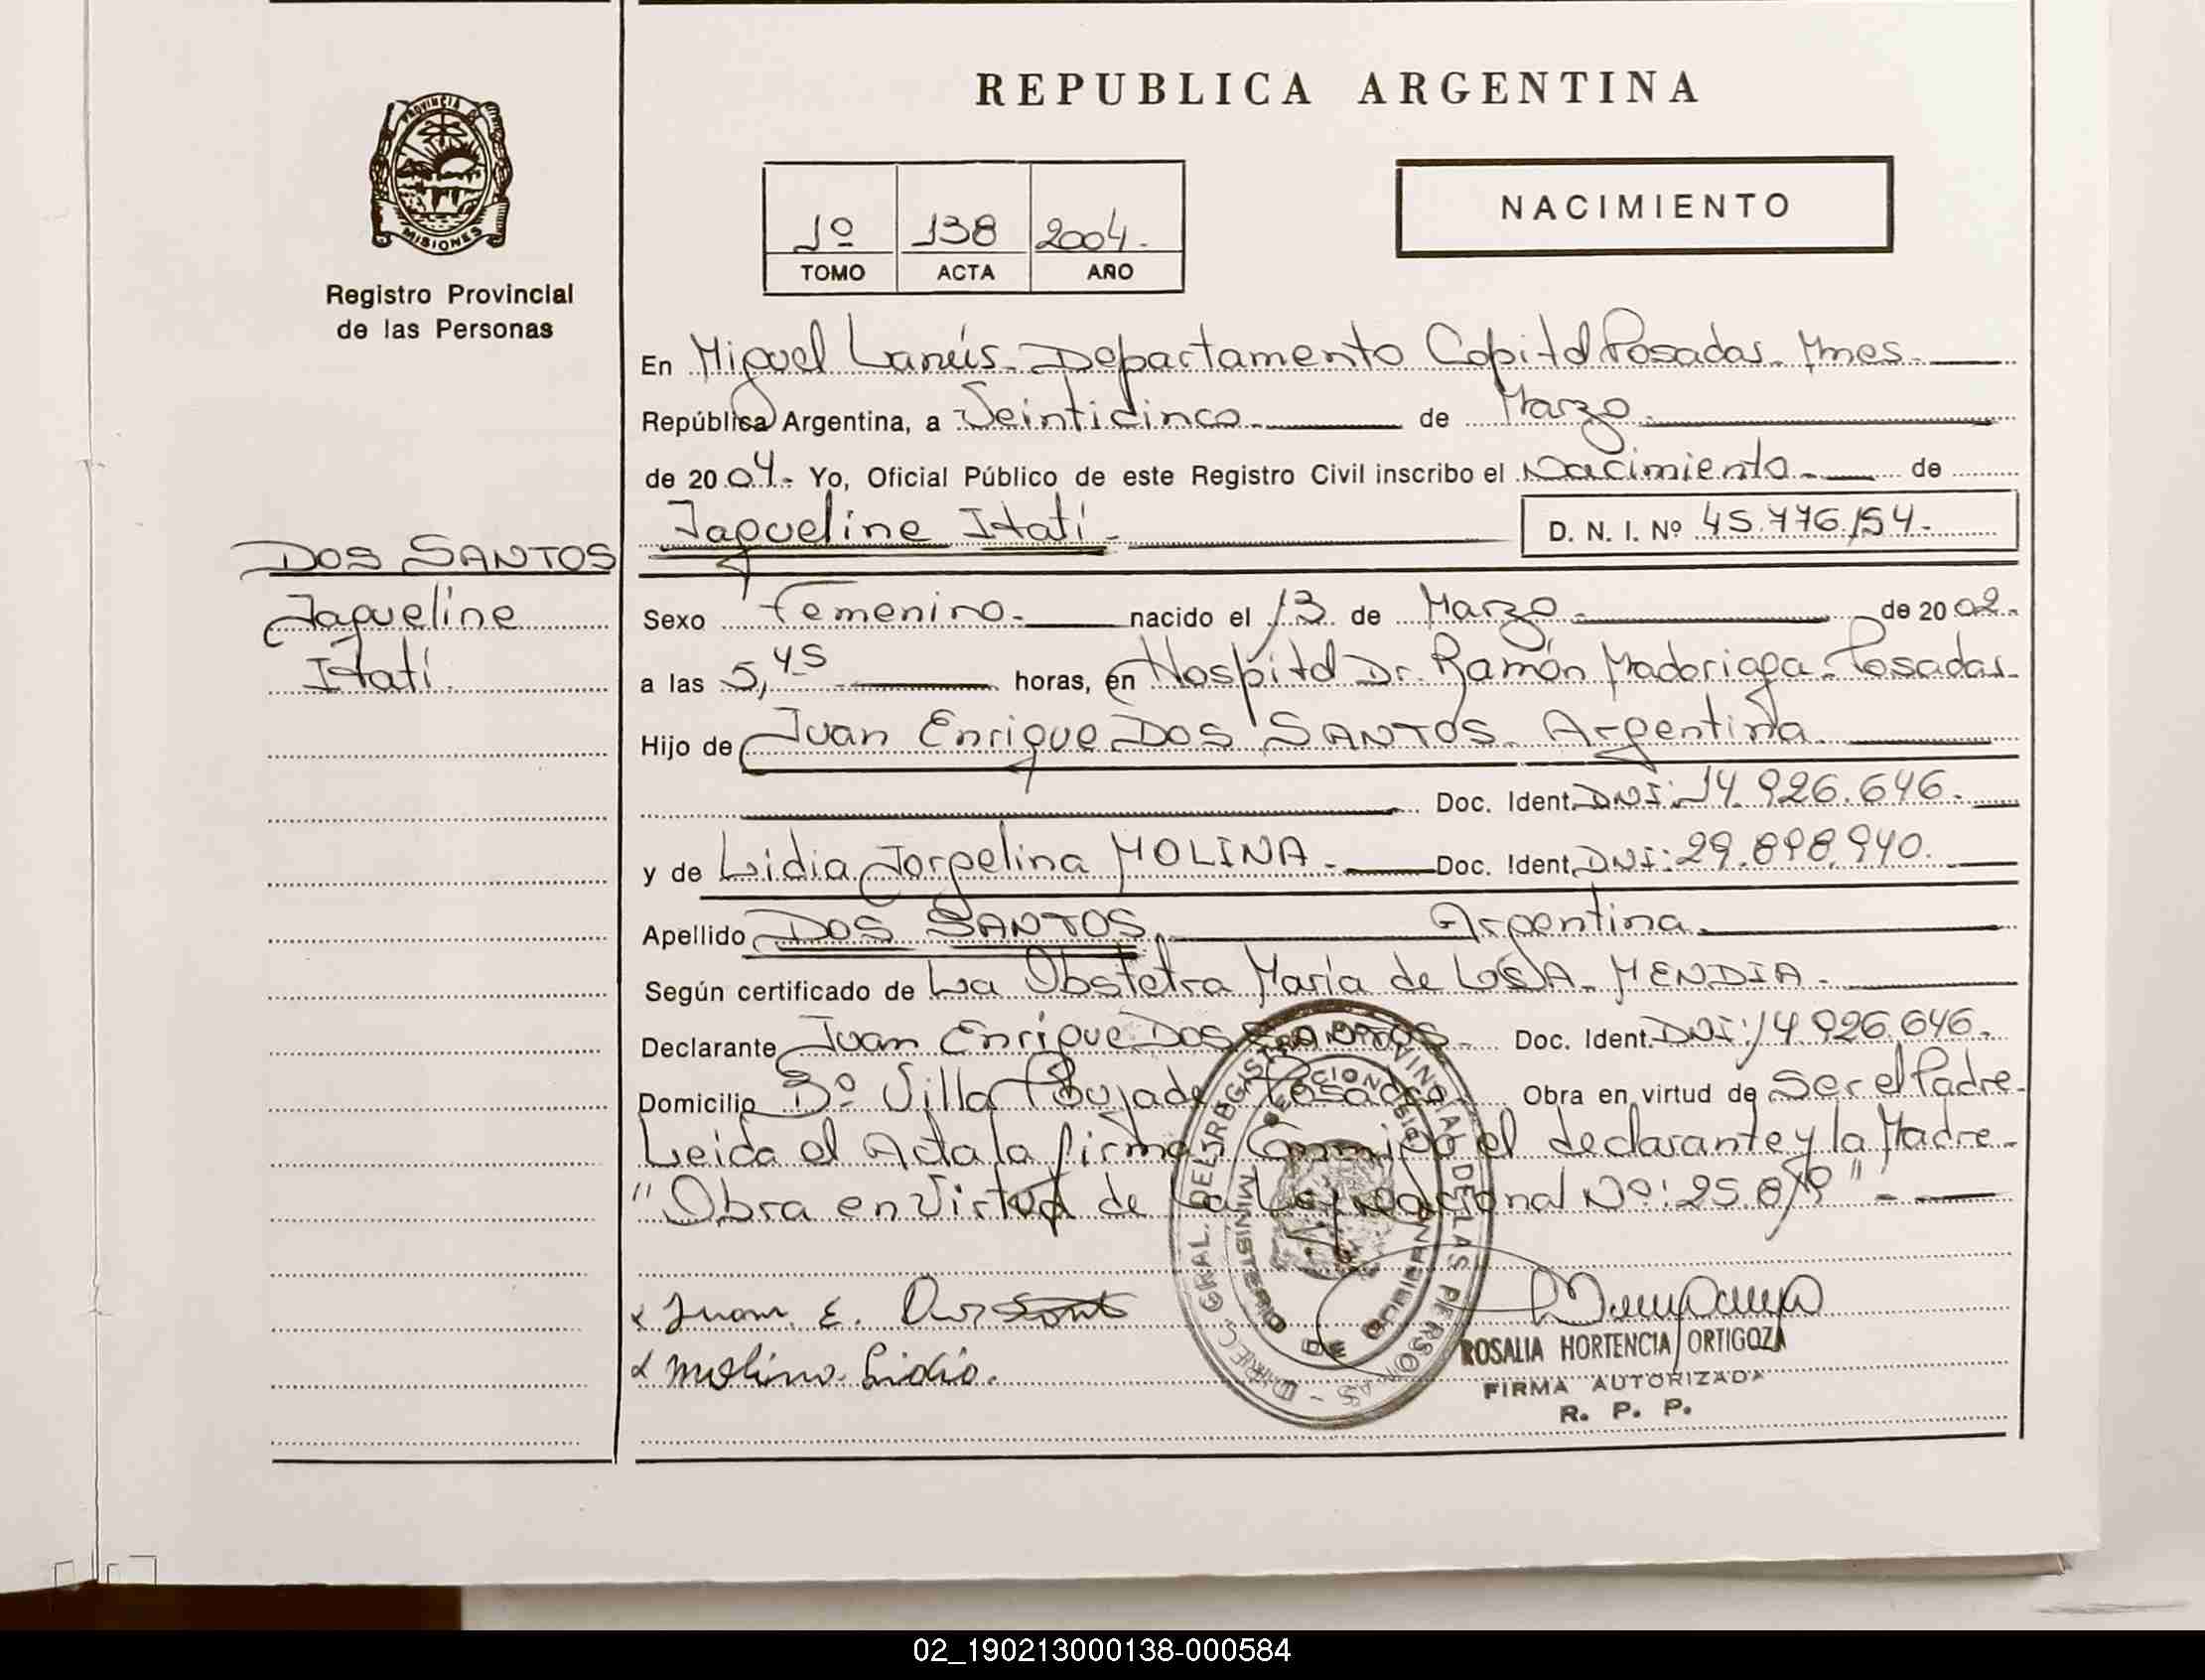 REPUBLICA ARGENTINA
PROVINCIA
MISIONES
Registro Provincial
de las Personas
1º 138 2004.-
TOMO ACTA AÑO
NACIMIENTO
En Miguel Lanús- Departamento Capital Posadas- Mnes.-
República Argentina, a Veinticinco.- de Marzo.-
de 2004.- Yo, Oficial Público de este Registro Civil inscribo el Nacimiento.- de
Jaqueline Itatí.- D. N. I. Nº 45.776.154.-
DOS SANTOS
Jaqueline
Itatí.
Sexo Femenino.- nacido el 13 de Marzo.- de 2002.-
a las 5,45 horas, en Hospital Dr. Ramón Madariaga- Posadas.-
Hijo de Juan Enrique DOS SANTOS- Argentina.
Doc. Ident. DNI: 14.926.646.-
y de Lidia Jorgelina MOLINA.- Doc. Ident. DNI: 29.898.940.
Apellido DOS SANTOS.- Argentina.-
Según certificado de La Obstetra María de Los A. MENDIA.-
Declarante Juan Enrique DOS SANTOS- Doc. Ident. DNI: 14.926.646.-
Domicilio Bº Villa Poujade- Posadas- Obra en virtud de Ser el Padre.-
Leída el Acta la firma Conmigo el declarante y la Madre.-
"Obra en Virtud de La Ley Nacional Nº: 25.819".-
DIREC. GRAL. DEL REGISTRO PROVINCIAL DE LAS PERSONAS
MINISTERIO DE GOBIERNO
x Juan. E. Dos Santos
x Molina. Lidia.
ROSALIA HORTENCIA ORTIGOZA
FIRMA AUTORIZADA
R. P. P.
02_190213000138-000584